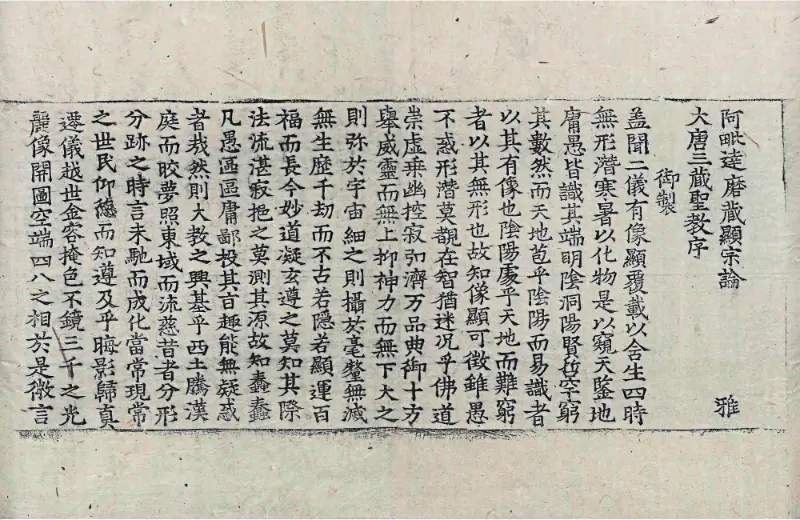 阿毗達磨藏顯宗論 雅
大唐三藏聖教序
御製
盖聞二儀有像顯覆載以含生四時
無形潜寒暑以化物是以窺天鑒地
庸愚皆識其端明陰洞陽賢哲罕窮
其數然而天地苞乎陰陽而易識者
以其有像也陰陽處乎天地而難窮
者以其無形也故知像顯可徵雖愚
不惑形潜莫覩在智猶迷况乎佛道
崇虛乗幽控寂弘濟万品典御十方
舉威靈而無上抑神力而無下大之
則弥於宇宙細之則攝於毫釐無滅
無生歷千劫而不古若隱若顯運百
福而長今妙道凝玄遵之莫知其際
法流湛寂挹之莫測其源故知蠢蠢
凡愚區區庸鄙投其旨趣能無疑惑
者哉然則大教之興基乎西土騰漢
庭而晈夢照東域而流慈昔者分形
分跡之時言未馳而成化當常現常
之世民仰德而知遵及乎晦影歸真
遷儀越世金容掩色不鏡三千之光
麗像開圖空端四八之相於是微言